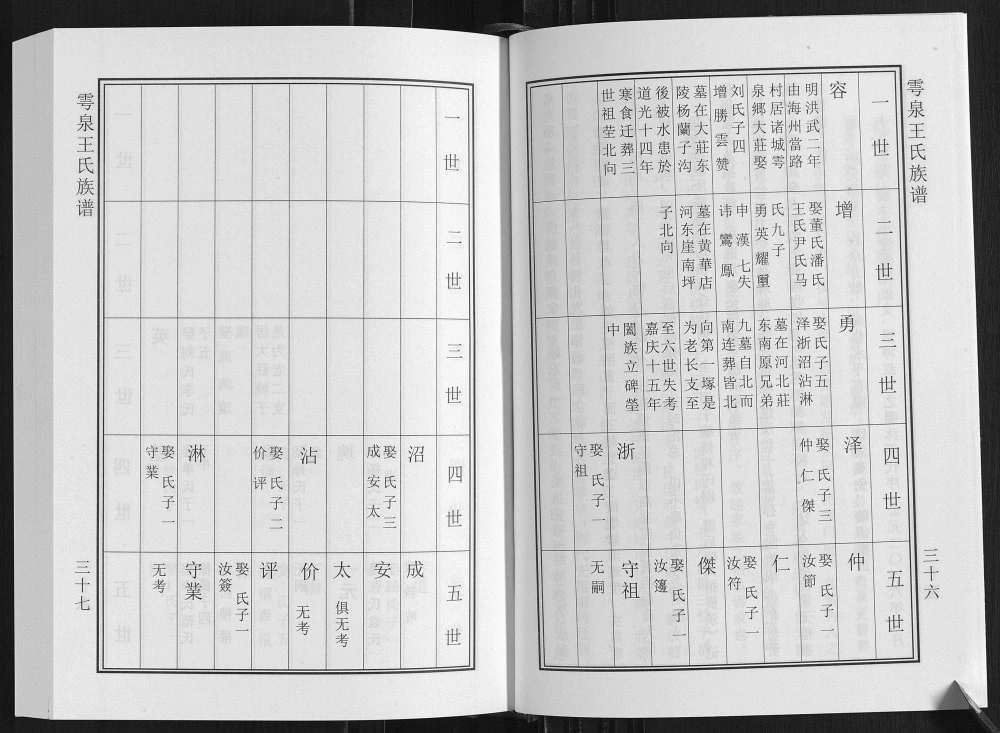 雩泉王氏族谱
三十六
一世
容
明洪武二年
由海州當路
村居诸城雩
泉鄉大莊娶
刘氏子四
增勝雲赞
墓在大莊东
陵杨蘭子沟
後被水患於
道光十四年
寒食迁葬三
世祖茔北向
二世
增
娶董氏潘氏
王氏尹氏马
氏九子
勇英耀璽
申漢七失
讳鸞鳳
墓在黄華店
河东崖南坪
子北向
三世
勇
娶氏子五
泽浙沼沾淋
墓在河北莊
东南原兄弟
九墓自北而
南连葬皆北
向第一塚是
为老长支至
至六世失考
嘉庆十五年
闔族立碑塋
中
四世
泽
娶 氏子三
仲仁傑
浙
娶 氏子一
守祖
五世
仲
娶 氏子一
汝節
仁
娶 氏子一
汝符
傑
娶 氏子一
汝籩
守祖
无嗣
一世
二世
三世
四世
沼
娶 氏子三
成安太
沾
娶 氏子二
价评
淋
娶 氏子一
守業
五世
成
安
太
俱无考
价
无考
评
娶 氏子一
汝簽
守業
无考
雩泉王氏族谱
三十七